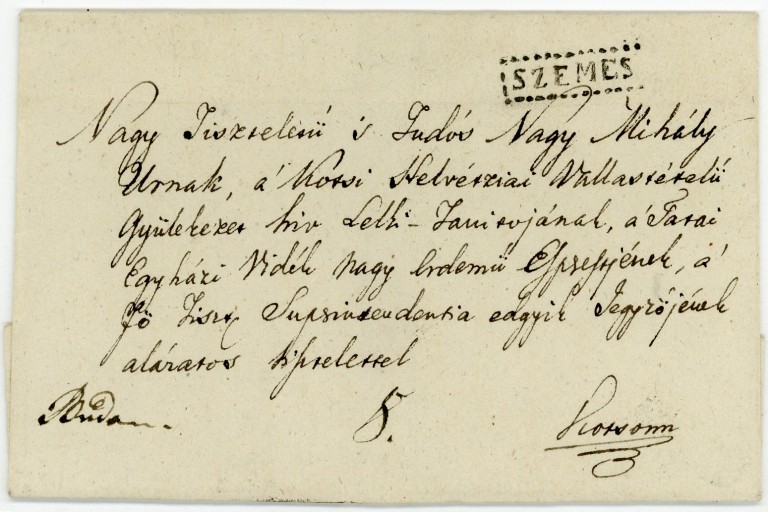 SZEMES
Nagy Tiszteletű 's Tudós Nagy Mihály
Urnak, a' Kotsi Helvétziai Vallástételű
Gyülekezet hiv Lelki-Tanitojának, a' Tatai
Egyházi Vidék nagy érdemű Esperestjének, a'
Fő Tiszt Superintendentia edgyik Jegyzőjének
alázatos tisztelettel
Budán
Kotsonn